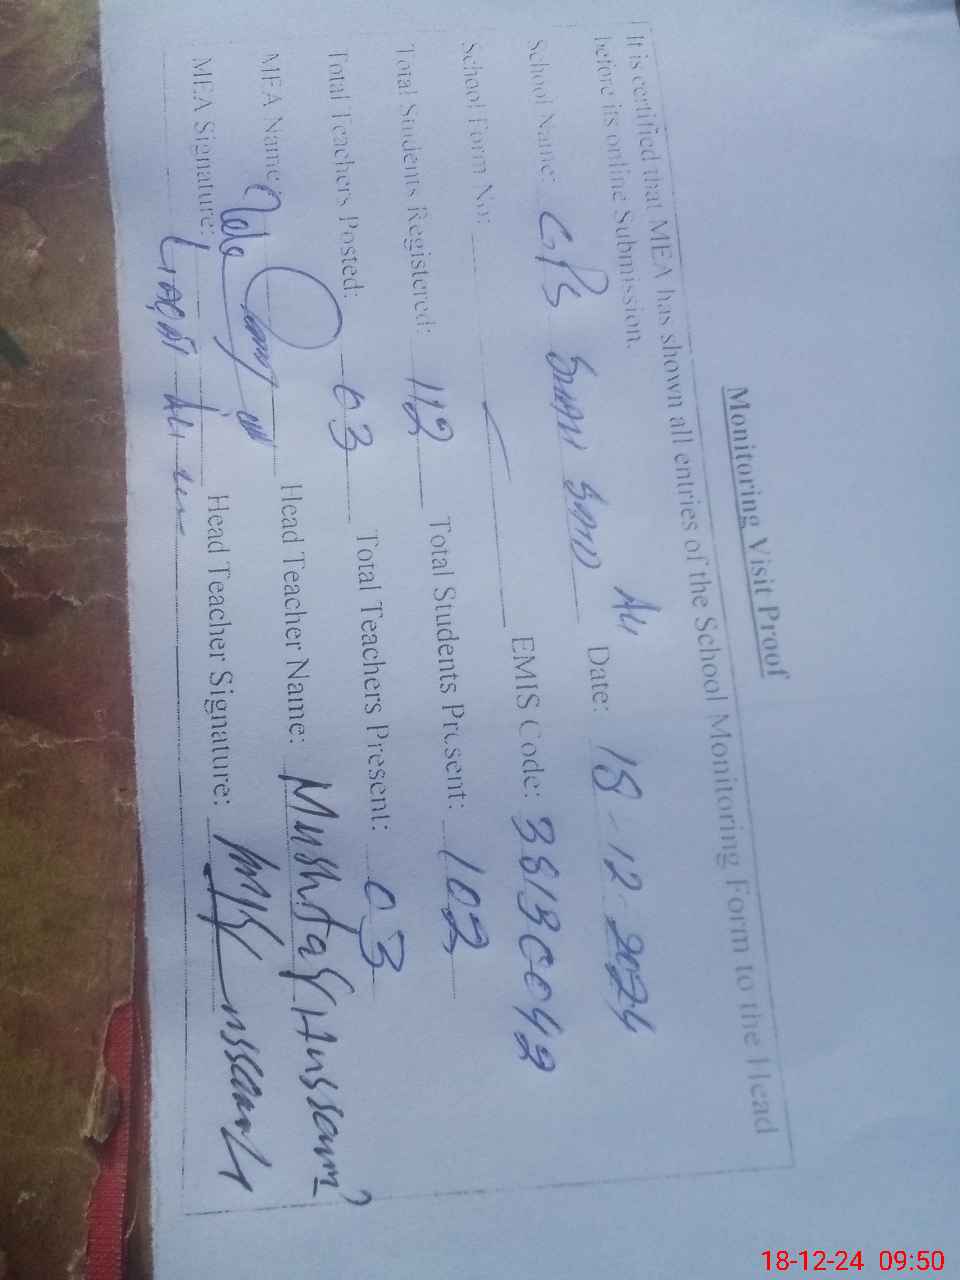 Monitoring Visit Proof
It is certified that MEA has shown all entries of the School Monitoring Form to the Head
before its online Submission.
School Name: GPS Ali Date: 18-12-2024
School Form No: EMIS Code: 38130042
Total Students Registered: 112 Total Students Present: 102
Total Teachers Posted: 03 Total Teachers Present: 03
MEA Name: Head Teacher Name: Mushtaq Hussain
MEA Signature: Head Teacher Signature:
18-12-24 09:50